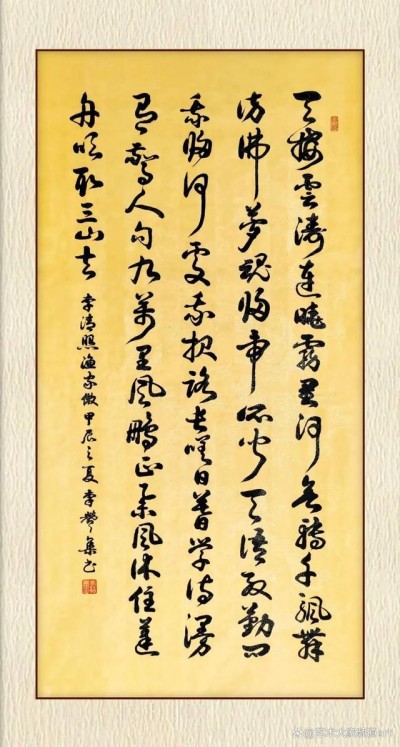 天接雲濤連曉霧星河欲轉千帆舞
仿佛夢魂歸帝所聞天語殷勤問
我歸何處我報路長嗟日暮學詩謾
有驚人句九萬里風鵬正舉風休住蓬
舟吹取三山去
李清照漁家傲甲辰之夏李集書